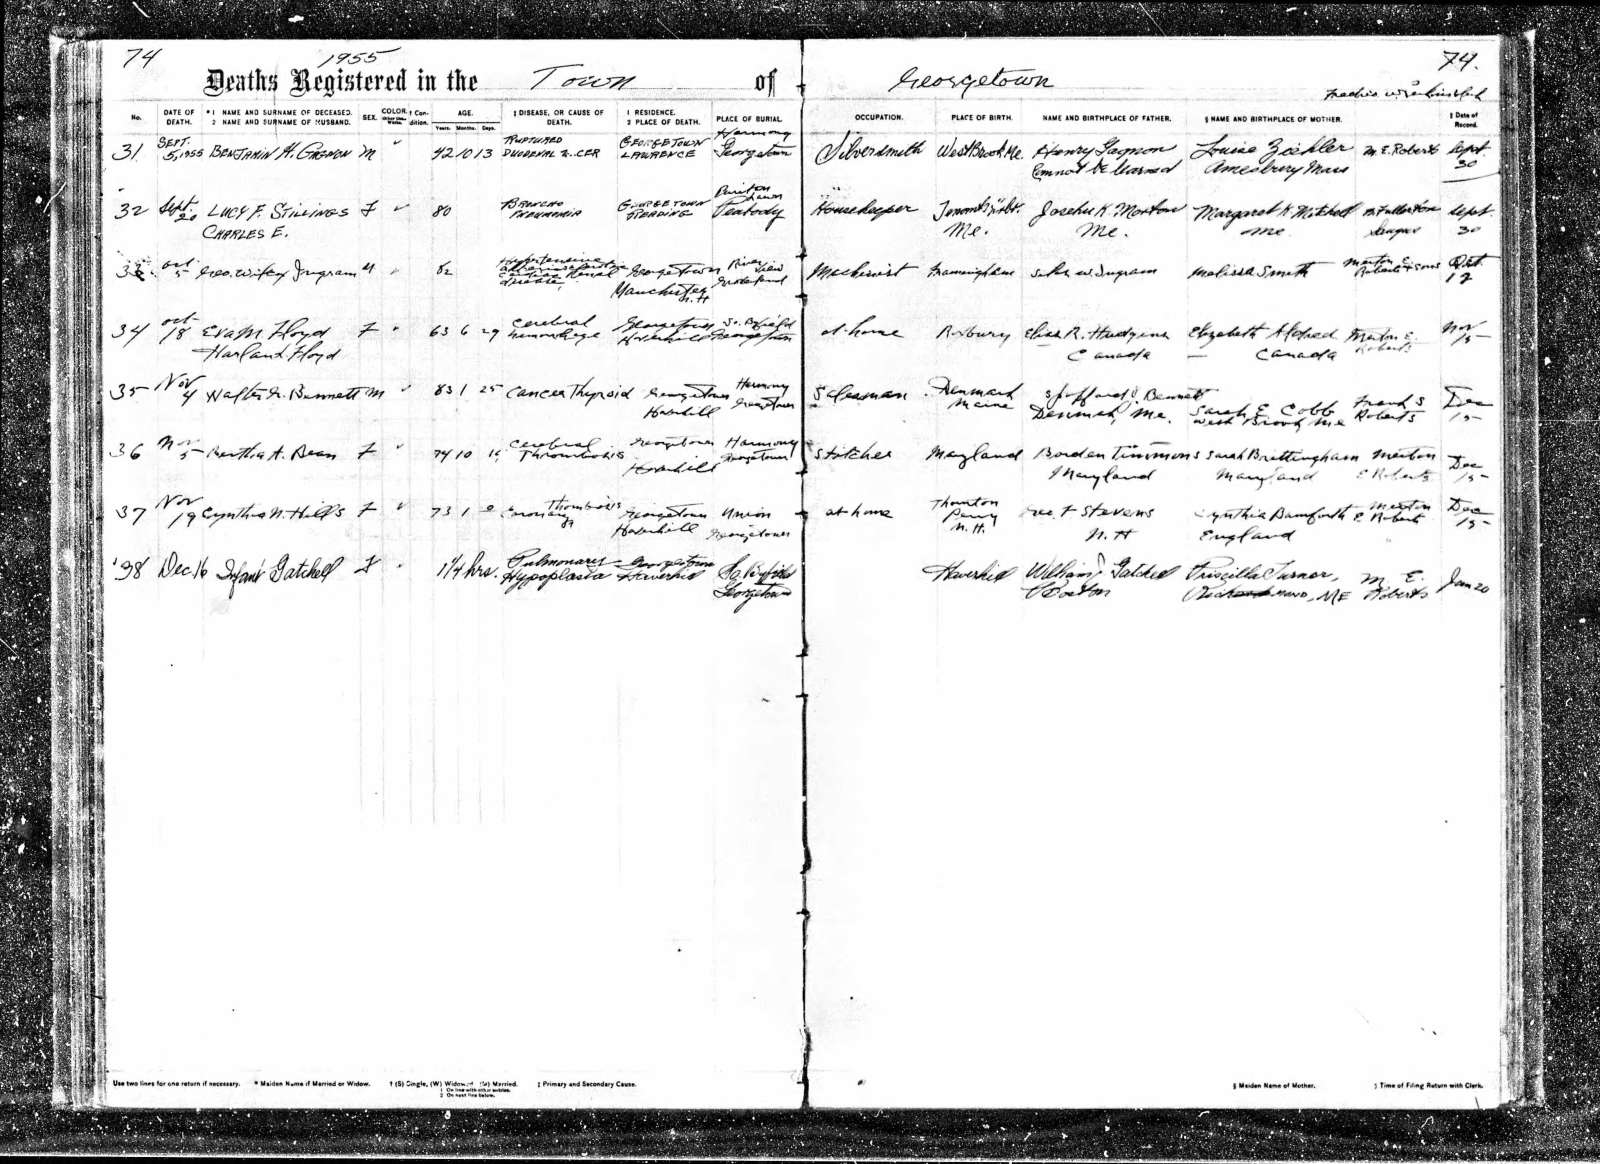 74
1955
74.
Deaths Registered in the Town of Georgetown
No. DATE OF DEATH. * 1 NAME AND SURNAME OF DECEASED. 2 NAME AND SURNAME OF HUSBAND. SEX. COLOR. † Condition. AGE. Years. Months. Days. ‡ DISEASE, OR CAUSE OF DEATH. 1 RESIDENCE. 2 PLACE OF DEATH. PLACE OF BURIAL. OCCUPATION. PLACE OF BIRTH. NAME AND BIRTHPLACE OF FATHER. § NAME AND BIRTHPLACE OF MOTHER. Date of Record.
SEPT. RUPTURED GEORGETOWN Harmony
31 5, 1955 BENJAMIN H. GAGNON M " 42 10 13 DUODENAL ULCER LAWRENCE Georgetown Silversmith WestBrook Me. Henry Gagnon Louise Zeehler M. E. Roberts Sept.
Cannot be learned Amesbury Mass 30
Puritan Lawn
32 Sept. 20 LUCY F. STILLINGS F " 80 BRONCHO PNEUMONIA GEORGETOWN READING Peabody Housekeeper Josephus K. Morton Margaret K Mitchell M Fullerton Sept.
CHARLES E. Me. Me. Me Saugus 30
33 Oct 5 Geo. Wifey Ingram M " 82 Hypertensive disease Georgetown River View Machinist Framingham Ingram Melissa Smith Merton E. Roberts & Sons Oct
Manchester N.H Groveland 12
34 Oct 18 Eva M Floyd F " 63 6 29 Cerebral hemorrhage Georgetown Haverhill So. Byfield Georgetown at home Roxbury R. Hudgins Elizabeth Aldred Merton E. Roberts Nov 15
Harland Floyd Canada — Canada
35 Nov 4 Walter G. Bennett M " 83 1 25 Cancer Thyroid Georgetown Harmony Georgetown Salesman Denmark Maine Spofford D. Bennett Sarah E Cobb Frank S Roberts Dec 15
Haverhill Denmark, Me. West Brook, Me
36 Nov 5 Bertha A. Bean F " 74 10 Cerebral Thrombosis Georgetown Harmony Georgetown Stitcher Maryland Borden Timmons Sarah Brittingham Merton E Roberts Dec 15
Haverhill Maryland Maryland
37 Nov 19 Cynthia N. Hills F " 73 1 Coronary Thrombosis Georgetown Union Georgetown at home Thornton Ferry N.H. Geo. F Stevens Cynthia Bamforth Merton E. Roberts Dec 15
Haverhill N. H England
'98 Dec 16 Infant Gatchell F " 1 1/4 hrs. Pulmonary Hypoplasia Georgetown Haverhill So. Byfield Haverhill William Gatchell Priscilla Turner, M. E. Roberts Jan 20
Georgetown Boston ME
Use two lines for one return if necessary. * Maiden Name if Married or Widow. † (S) Single, (W) Widowed (M) Married. ‡ Primary and Secondary Cause. § Maiden Name of Mother. Time of Filing Return with Clerk.
1 On line with other entries.
2 On next line below.